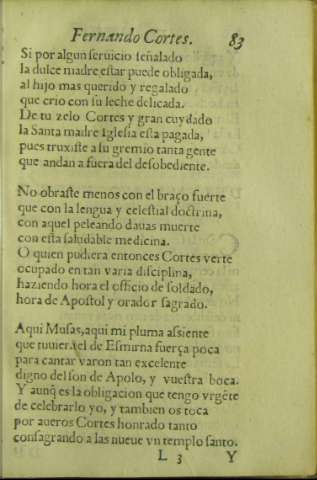 Fernando Cortes. 83
Si por algun seruicio señalado
la dulce madre estar puede obligada,
al hijo mas querido y regalado
que crio con su leche delicada.
De tu zelo Cortes y gran cuydado
la Santa madre Iglesia esta pagada,
pues truxiste a su gremio tanta gente
que andan a fuera del desobediente.
No obraste menos con el braço fuerte
que con la lengua y celestial doctrina,
con aquel peleando dauas muerte
con esta saludable medicina.
O quien pudiera entonces Cortes verte
ocupado en tan varia disciplina,
haziendo hora el officio de soldado,
hora de Apostol y orador sagrado.
Aqui Musas, aqui mi pluma assiente
que tuuiera el de Esmirna fuerça poca
para cantar varon tan excelente
digno del son de Apolo, y vuestra boca.
Y aunq̃ es la obligacion que tengo vrgẽte
de celebrarlo yo, y tambien os toca
por aueros Cortes honrado tanto
consagrando a las nueue vn templo santo.
L 3 Y